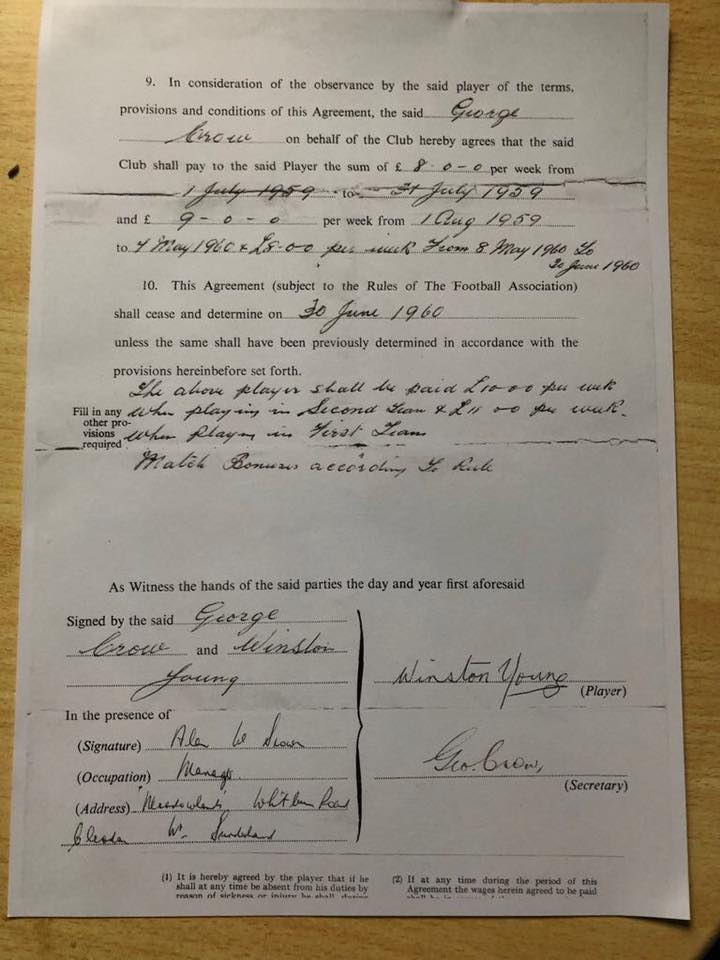 9. In consideration of the observance by the said player of the terms,
provisions and conditions of this Agreement, the said George
Crow on behalf of the Club hereby agrees that the said
Club shall pay to the said Player the sum of £ 8-0-0 per week from
1 July 1959 to 31 July 1959
and £ 9-0-0 per week from 1 Aug 1959
to 7 May 1960 & £8-00 per week From 8 May 1960 To
30 June 1960
10. This Agreement (subject to the Rules of The Football Association)
shall cease and determine on 30 June 1960
unless the same shall have been previously determined in accordance with the
provisions hereinbefore set forth.
The above player shall be paid £10 00 per week
Fill in any When playing in Second Team & £11 00 per week.
other pro-
visions When Playing in First Team
required
Match Bonuses according To Rule
As Witness the hands of the said parties the day and year first aforesaid
Signed by the said George
Crow and Winston
Young
Winston Young
(Player)
In the presence of
(Signature) Alan
(Occupation) Manager
Geo. Crow,
(Secretary)
(Address) Meadowlands Whitburn Road
Cleadon Nr. Sunderland
(1) It is hereby agreed by the player that if he
shall at any time be absent from his duties by
reason of sickness or injury he shall during
(2) If at any time during the period of this
Agreement the wages herein agreed to be paid
shall be in